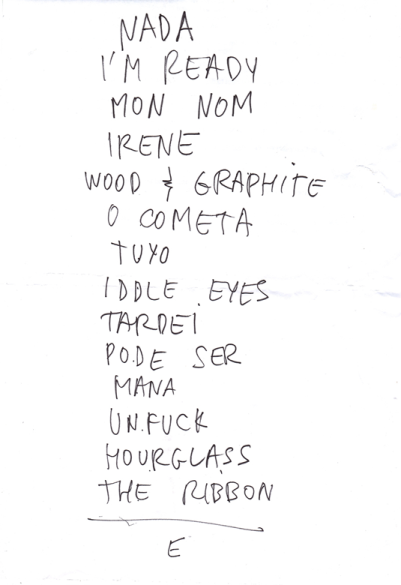 NADA
I'M READY
MON NOM
IRENE
WOOD & GRAPHITE
O COMETA
TUYO
IDDLE EYES
TARDEI
PODE SER
MANA
UN.FUCK
HOURGLASS
THE RIBBON
E